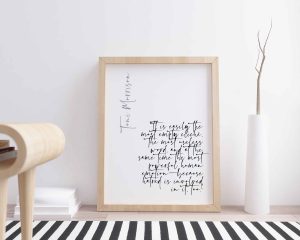 Toni Morrison
It is easily the
most empty cliché,
the most useless
word and at the
same time the most
powerful human
emotion - because
hatred is involved
in it, too.